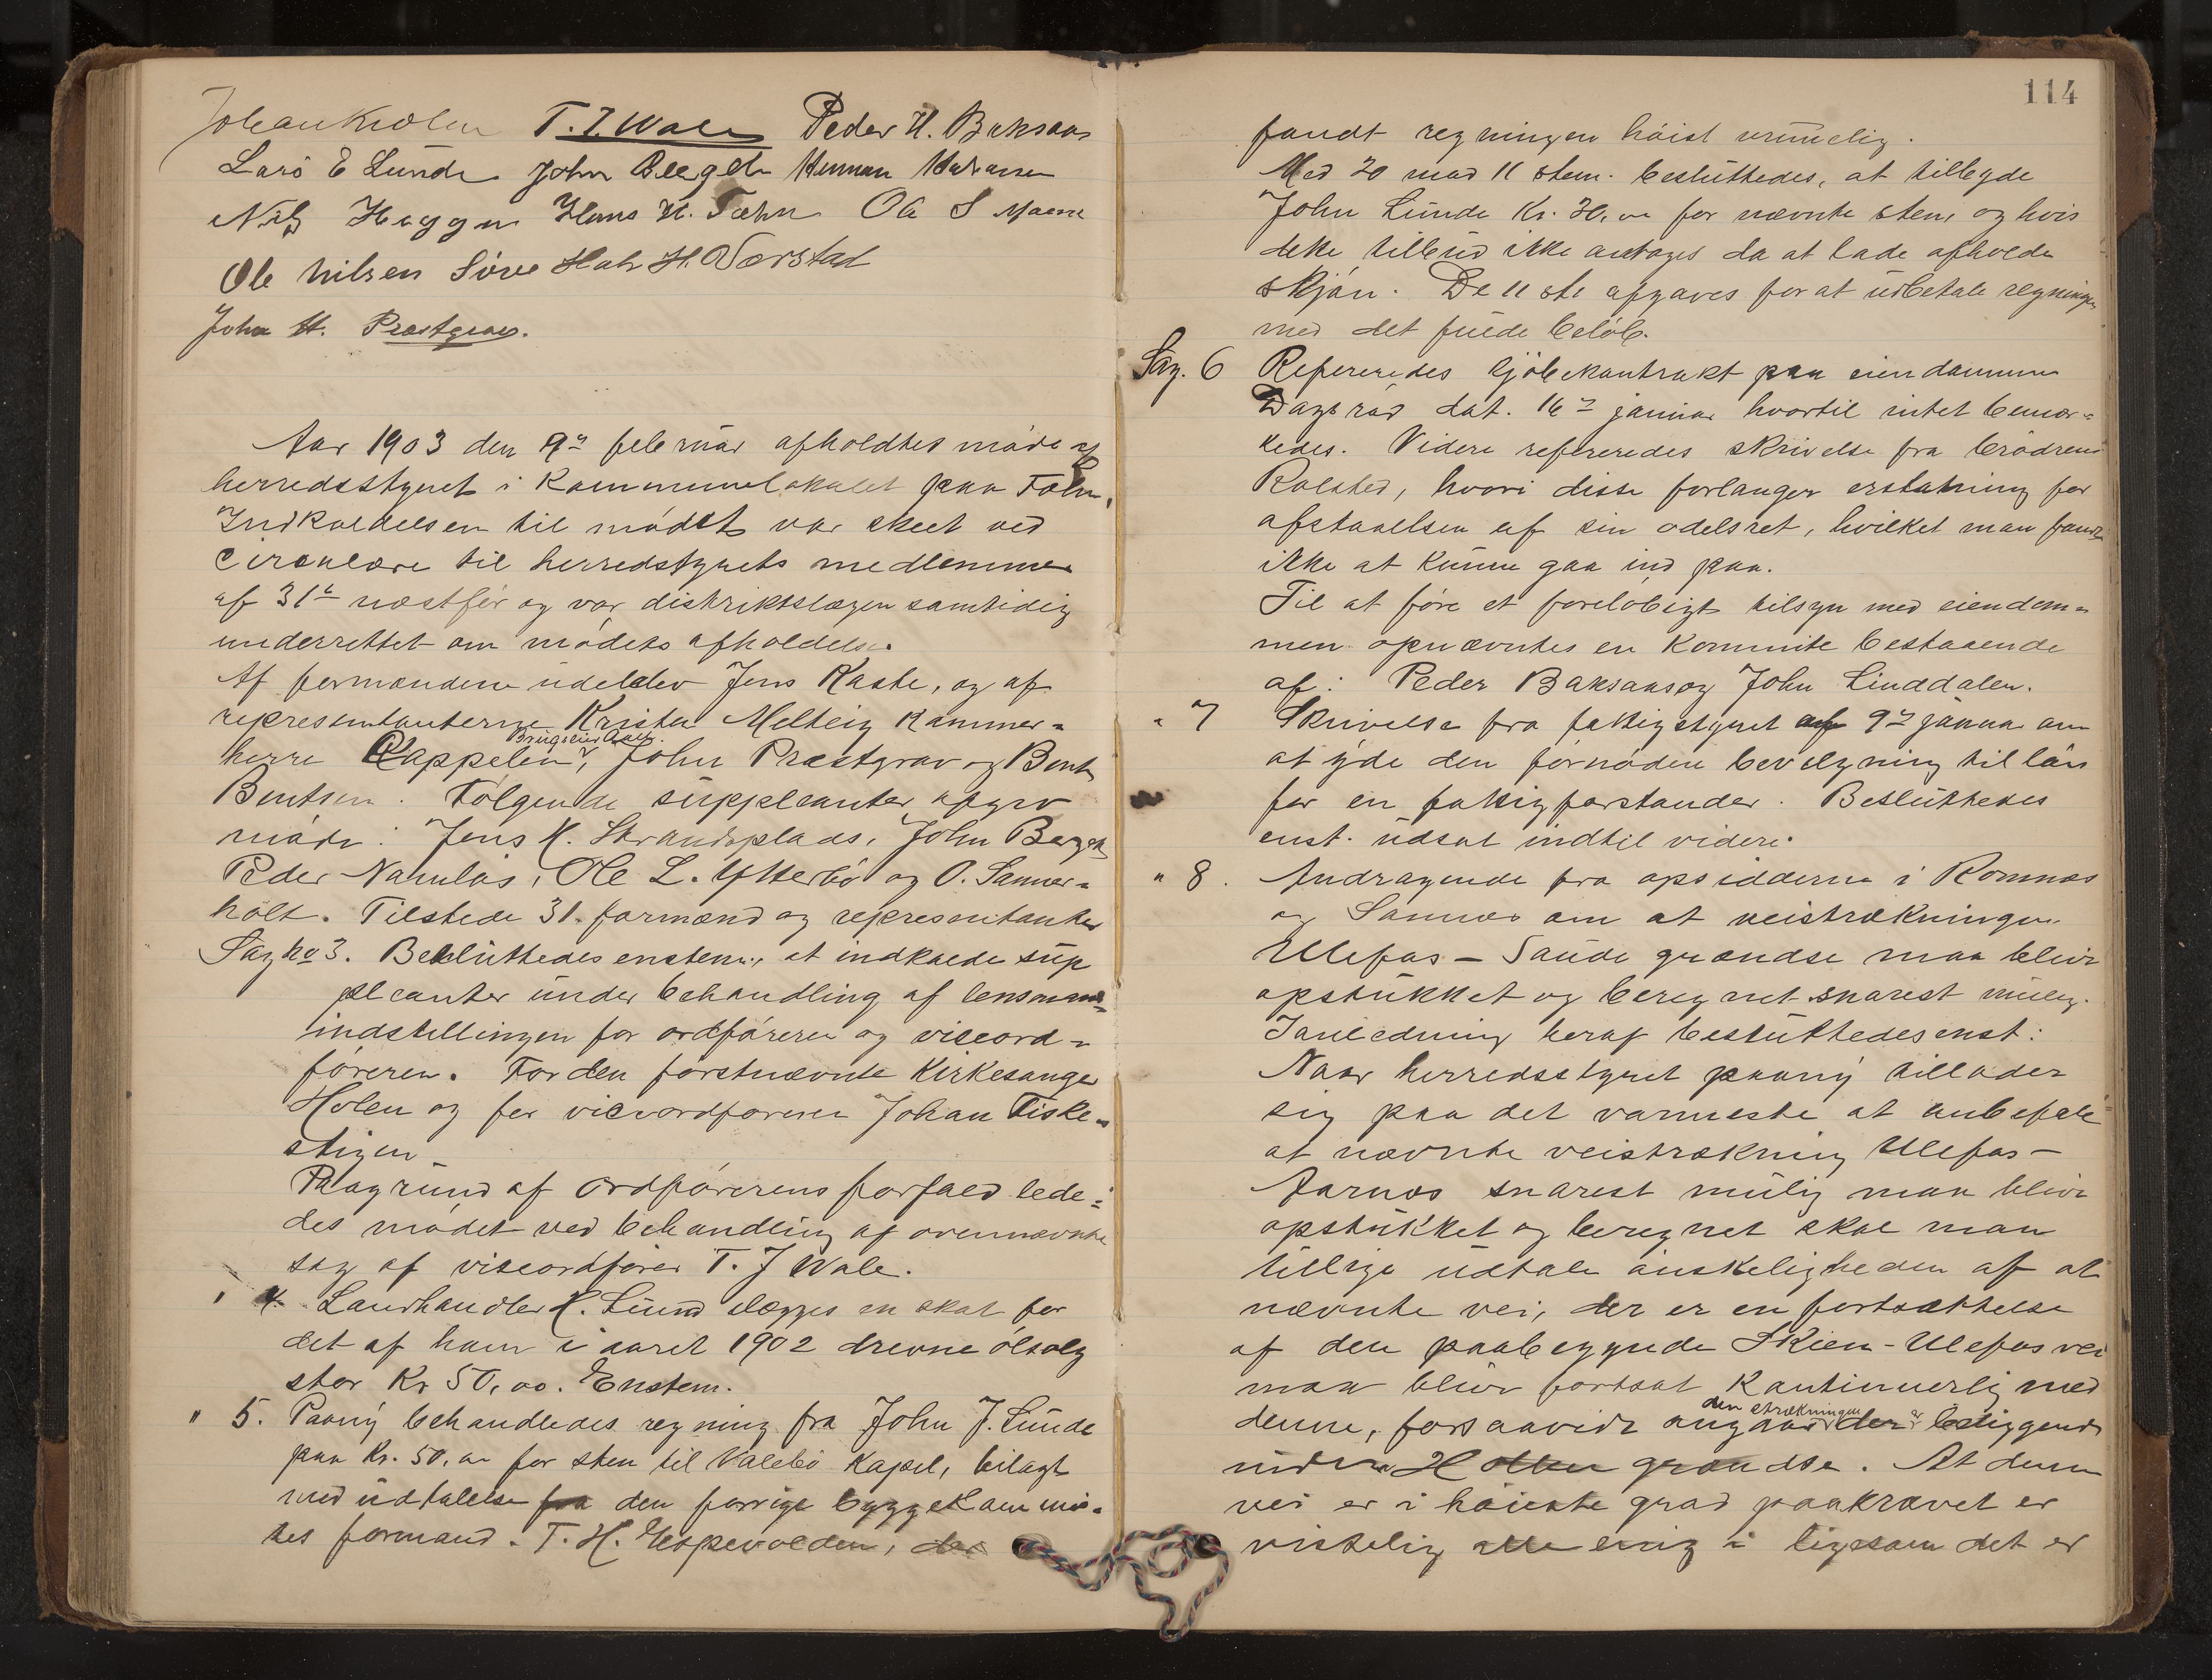 Johan Kvolen T. J. Wale Peder H. Baksaas
Lars E Lunde John Bergeth Herman Halvorsen
Nils Heggen Hans H. Tæhn Ole S Moene
Ole Nilsen Söve Halv H. Nærstad
John H. Præstgrav.
Aar 1903 den 9de februar afholdtes möde af
herredsstyret i Kommunelokalet paa Folm,
Indkaldelsen til mödet var skeet ved
circulære til herredstyrets medlemmer
af 31te næstför og var distriktslægen samtidig
underrettet om mödets afholdelse.
Af formændene udeblev Jens Kaste, og af
representanterne Krister Melteig Kammer=
Brugseier Aall.
herre Cappelen, John Præstgrav og Bent
Bentsen. Følgende suppleanter afgav
möde: Jens K. Strandsplads, John Bergeth
Peder Namlös, Ole L. Ytterbö og O. Sanner=
holt. Tilstede 31. formænd og representanter
Sag no 3. Besluttedes enstem., at indkalde sup
pleanter under behandling af lensmands=
indstillingen for ordföreren og viceord=
föreren. For den förstnævnte Kirkesanger
Holen og for viceordföreren Johan Fiske=
stigen
Paagrund af Ordförerens forfald lede=
des mödet ved behandling af ovennævnte
sag af viseordförer T. J Wale.
" 4. Landhandler H. Lund ilægges en skat for
det af ham i aaret 1902 drevne ölsalg
stor Kr 50,00. Enstem.
" 5. Paany behandledes regning fra John J. Lunde
paa Kr. 50,00 for sten til Valebö Kapel, bilagt
med udtalelse fra den forrige byggekommi=
tes formand. T. H. Espevolden, der
114
fandt regningen höist urimelig.
Med 20 mod 11 stem. besluttedes, at tilbyde
John Lunde Kr. 30,00 for nævnte sten, og hvis
dette tilbud ikke antages da at lade afholde
skjön. De 11 ste afgaves for at udbetale regningen
med det fulde belöb.
Sag. 6 Refereredes kjöbekontrakt paa eiendommen
Dagsrud dat. 16de januar hvortil intet bemær=
kedes. Videre refereredes skrivelse fra brödrene
Rolsted, hvori disse forlanger erstatning for
afstaaelsen af sin odelsret, hvilket man fandt
ikke at kunne gaa ind paa.
Til at före et forelöbigt tilsyn med eiendom=
men opnævntes en Kommite bestaaende
af: Peder Baksaas og John Linddalen.
" 7 Skrivelse fra fattigstyret af 9de januar om
at yde den fornödne bevilgning til lön
for en fattigforstander. Besluttedes
enst. udsat indtil videre.
" 8. Andragende fra opsidderne i Romnæs
og Sannes om at veistrækningen
Ulefos – Saude grændse maa blive
opstukket og beregnet snarest mulig.
I anledning heraf besluttedes enst:
Naar herredsstyret paany tillader
sig paa det varmeste at anbefale
at nævnte veistrækning Ulefos –
Aarnes snarest mulig maa blive
opstukket og beregnet skal man
tillige udtale önskeligheden af at
nævnte vei, der er en fortsættelse
af den paabegynde Skien - Ulefos vei
maa blive fortsat Kontinuerlig med
den strækningen er
denne, forsaavidt angaar der beliggende
inden Holden grændse. At denne
vei er i höieste grad paakrævet er
vistelig alle enig i ligesom det er